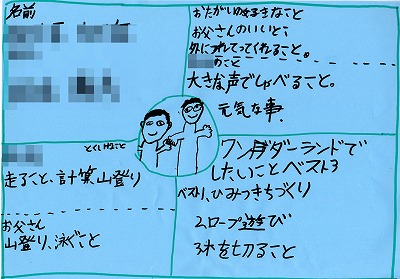 名前
おたがいの好きなこと
お父さんのいいとこ
外につれてってくれること。
のとこ
大きな声でしゃべること。
元気な事.
とくいなこと
走ること、計算、山登り
お父さん
山登り、泳ぐこと
ワンダーランドで
したいことベスト3
ベスト1、ひみつきちづくり
2ロープ遊び
3木を切ること